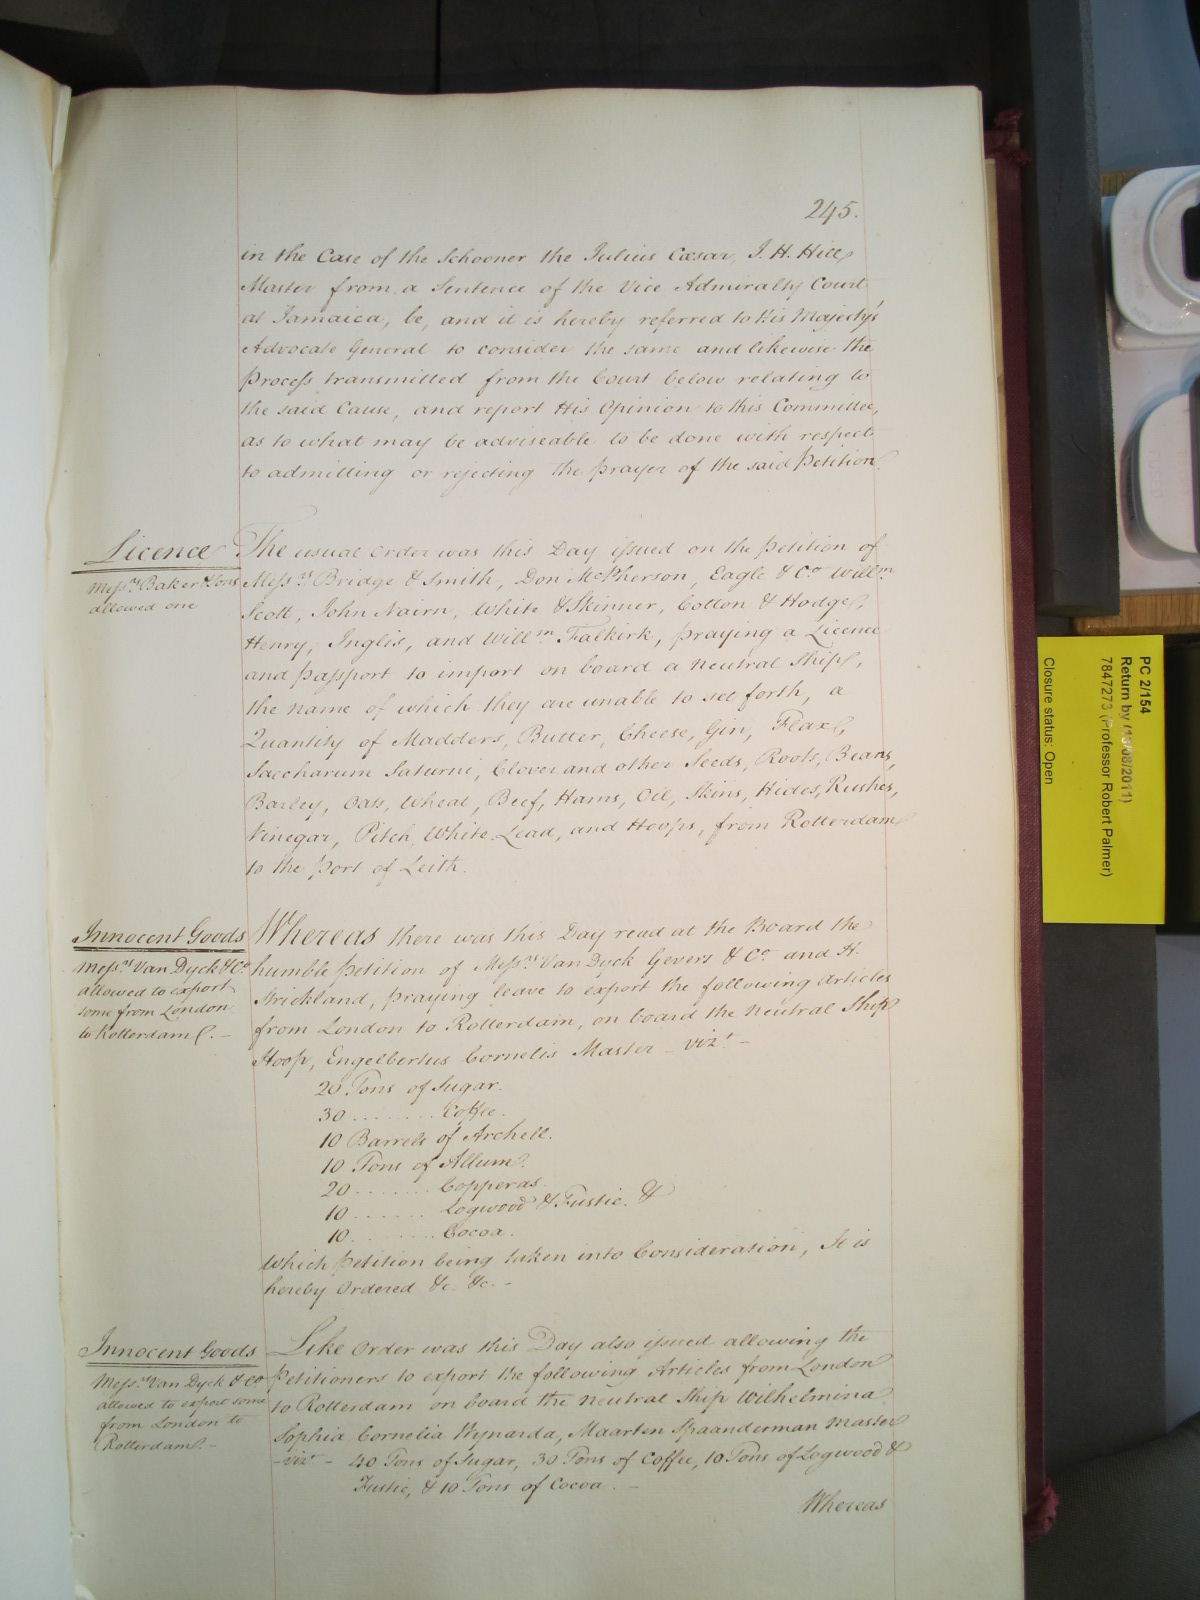 245.
in the Case of the Schooner the Julius Cæsar, J. H. Hill
Master from a Sentence of the Vice Admiralty Court
at Jamaica, be, and it is hereby referred to His Majesty's
Advocate General to consider the same and likewise the
Process transmitted from the Court below relating to
the said Cause, and report His Opinion to this Committee,
as to what may be adviseable to be done with respect
to admitting or rejecting the prayer of the said Petition.
Licence
Messrs Baker & Sons
allowed one
The usual Order was this Day issued on the Petition of
Messrs Bridge & Smith, Don McPherson, Eagle & Co Willm
Scott, John Nairn, White & Skinner, Cotton & Hodge,
Henry, Inglis, and Willm Falkirk, praying a Licence
and passport to import on board a neutral Ship,
the name of which they are unable to set forth, a
Quantity of Madders, Butter, Cheese, Gin, Flax,
Saccharum Saturni, Clover and other Seeds, Roots, Beans,
Barley, Oats, Wheat, Beef, Hams, Oil, Skins, Hides, Rushes,
Vinegar, Pitch, White-Lead, and Hoops, from Rotterdam
to the Port of Leith.
Innocent Goods
Messrs Van Dyck & Co
allowed to export
some from London
to Rotterdam. -
Whereas there was this Day read at the Board the
humble Petition of Messrs Van Dyck Gevers & Co and H.
Strickland, praying leave to export the following Articles
from London to Rotterdam, on board the neutral Ship
Hoop, Engelbertus Cornelis Master - vizt -
20 Tons of Sugar.
30 ........ Coffee.
10 Barrels of Archell.
10 Tons of Allum.
20 ....... Copperas.
10 ....... Logwood & Fustic. &
10 ........ Cocoa.
Which Petition being taken into Consideration, It is
hereby Ordered &c. &c. -
Innocent Goods
Messrs Van Dyck & Co
allowed to export some
from London to
Rotterdam. -
Like Order was this Day also issued allowing the
Petitioners to export the following Articles from London
to Rotterdam on board the neutral Ship Wilhelmina
Sophia Cornelia Wynarda, Maarten Spaanderman Master
- vizt - 40 Tons of Sugar, 30 Tons of Coffee, 10 Tons of Logwood &
Fustic, & 10 Tons of Cocoa. -
Whereas
PC 2/154
Return by (13/08/2011)
7847273 (Professor Robert Palmer)
Closure status: Open